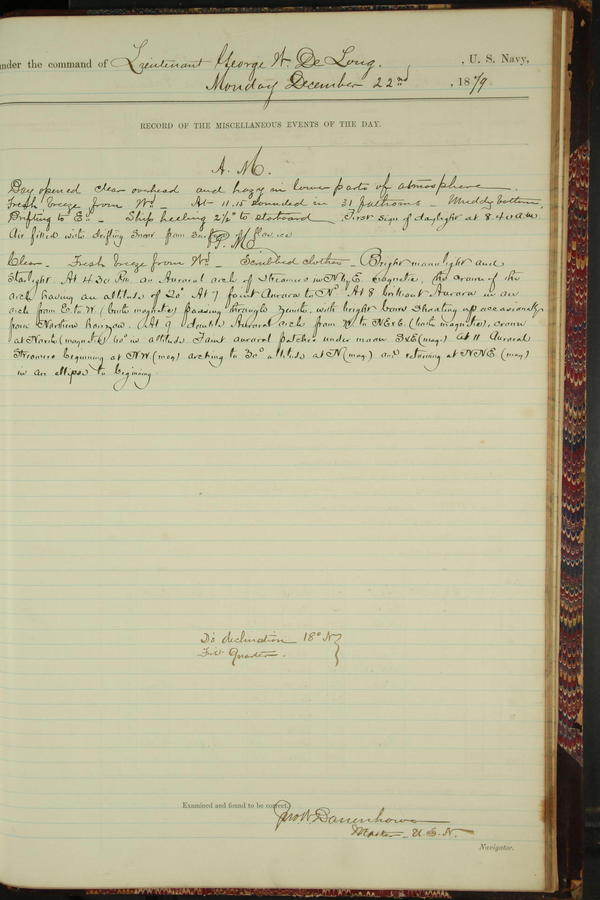 under the command of Lieutenant George W. De Long, , U. S. Navy,
Monday December 22nd , 1879
RECORD OF THE MISCELLANEOUS EVENTS OF THE DAY.
A. M.
Day opened clear overhead and hazy in lower parts of atmosphere.
Fresh breeze from Wd – At 11.15 sounded in 31 fathoms – Muddy bottom,
Drifting to Ed – Ship heeling 2½° to starboard. First sign of daylight at 8.40 a.m.
Air filled with drifting snow from surface of floe ice
P. M.
Clear. Fresh breeze from Wd – Scrubbed clothes – Bright moonlight and
starlight. At 4.30 P.m. an Auroral arch of streamers in N by E magnetic, the crown of the
arch having an altitude of 20° At 7 faint Aurora to Nd At 8 brilliant Aurora in an
arch from E. to W. (both magnetic) passing through zenith, with bright bars shooting up occasionally
from Northern horizon. At 9 double Auroral arch from W to NExE. (both magnetic), crown
at North (magnetic) 60° in altitude Faint auroral patches under moon SxE (mag.) At 11 Auroral
Streamers beginning at NW. (mag) arching to 30° altitude at N (mag.) and returning at NNE (mag)
in an ellipse to beginning.
D's declination 18° N }
First Quarter.
Examined and found to be correct.
Jno W. Danenhower
Master – U. S. N.
Navigator.